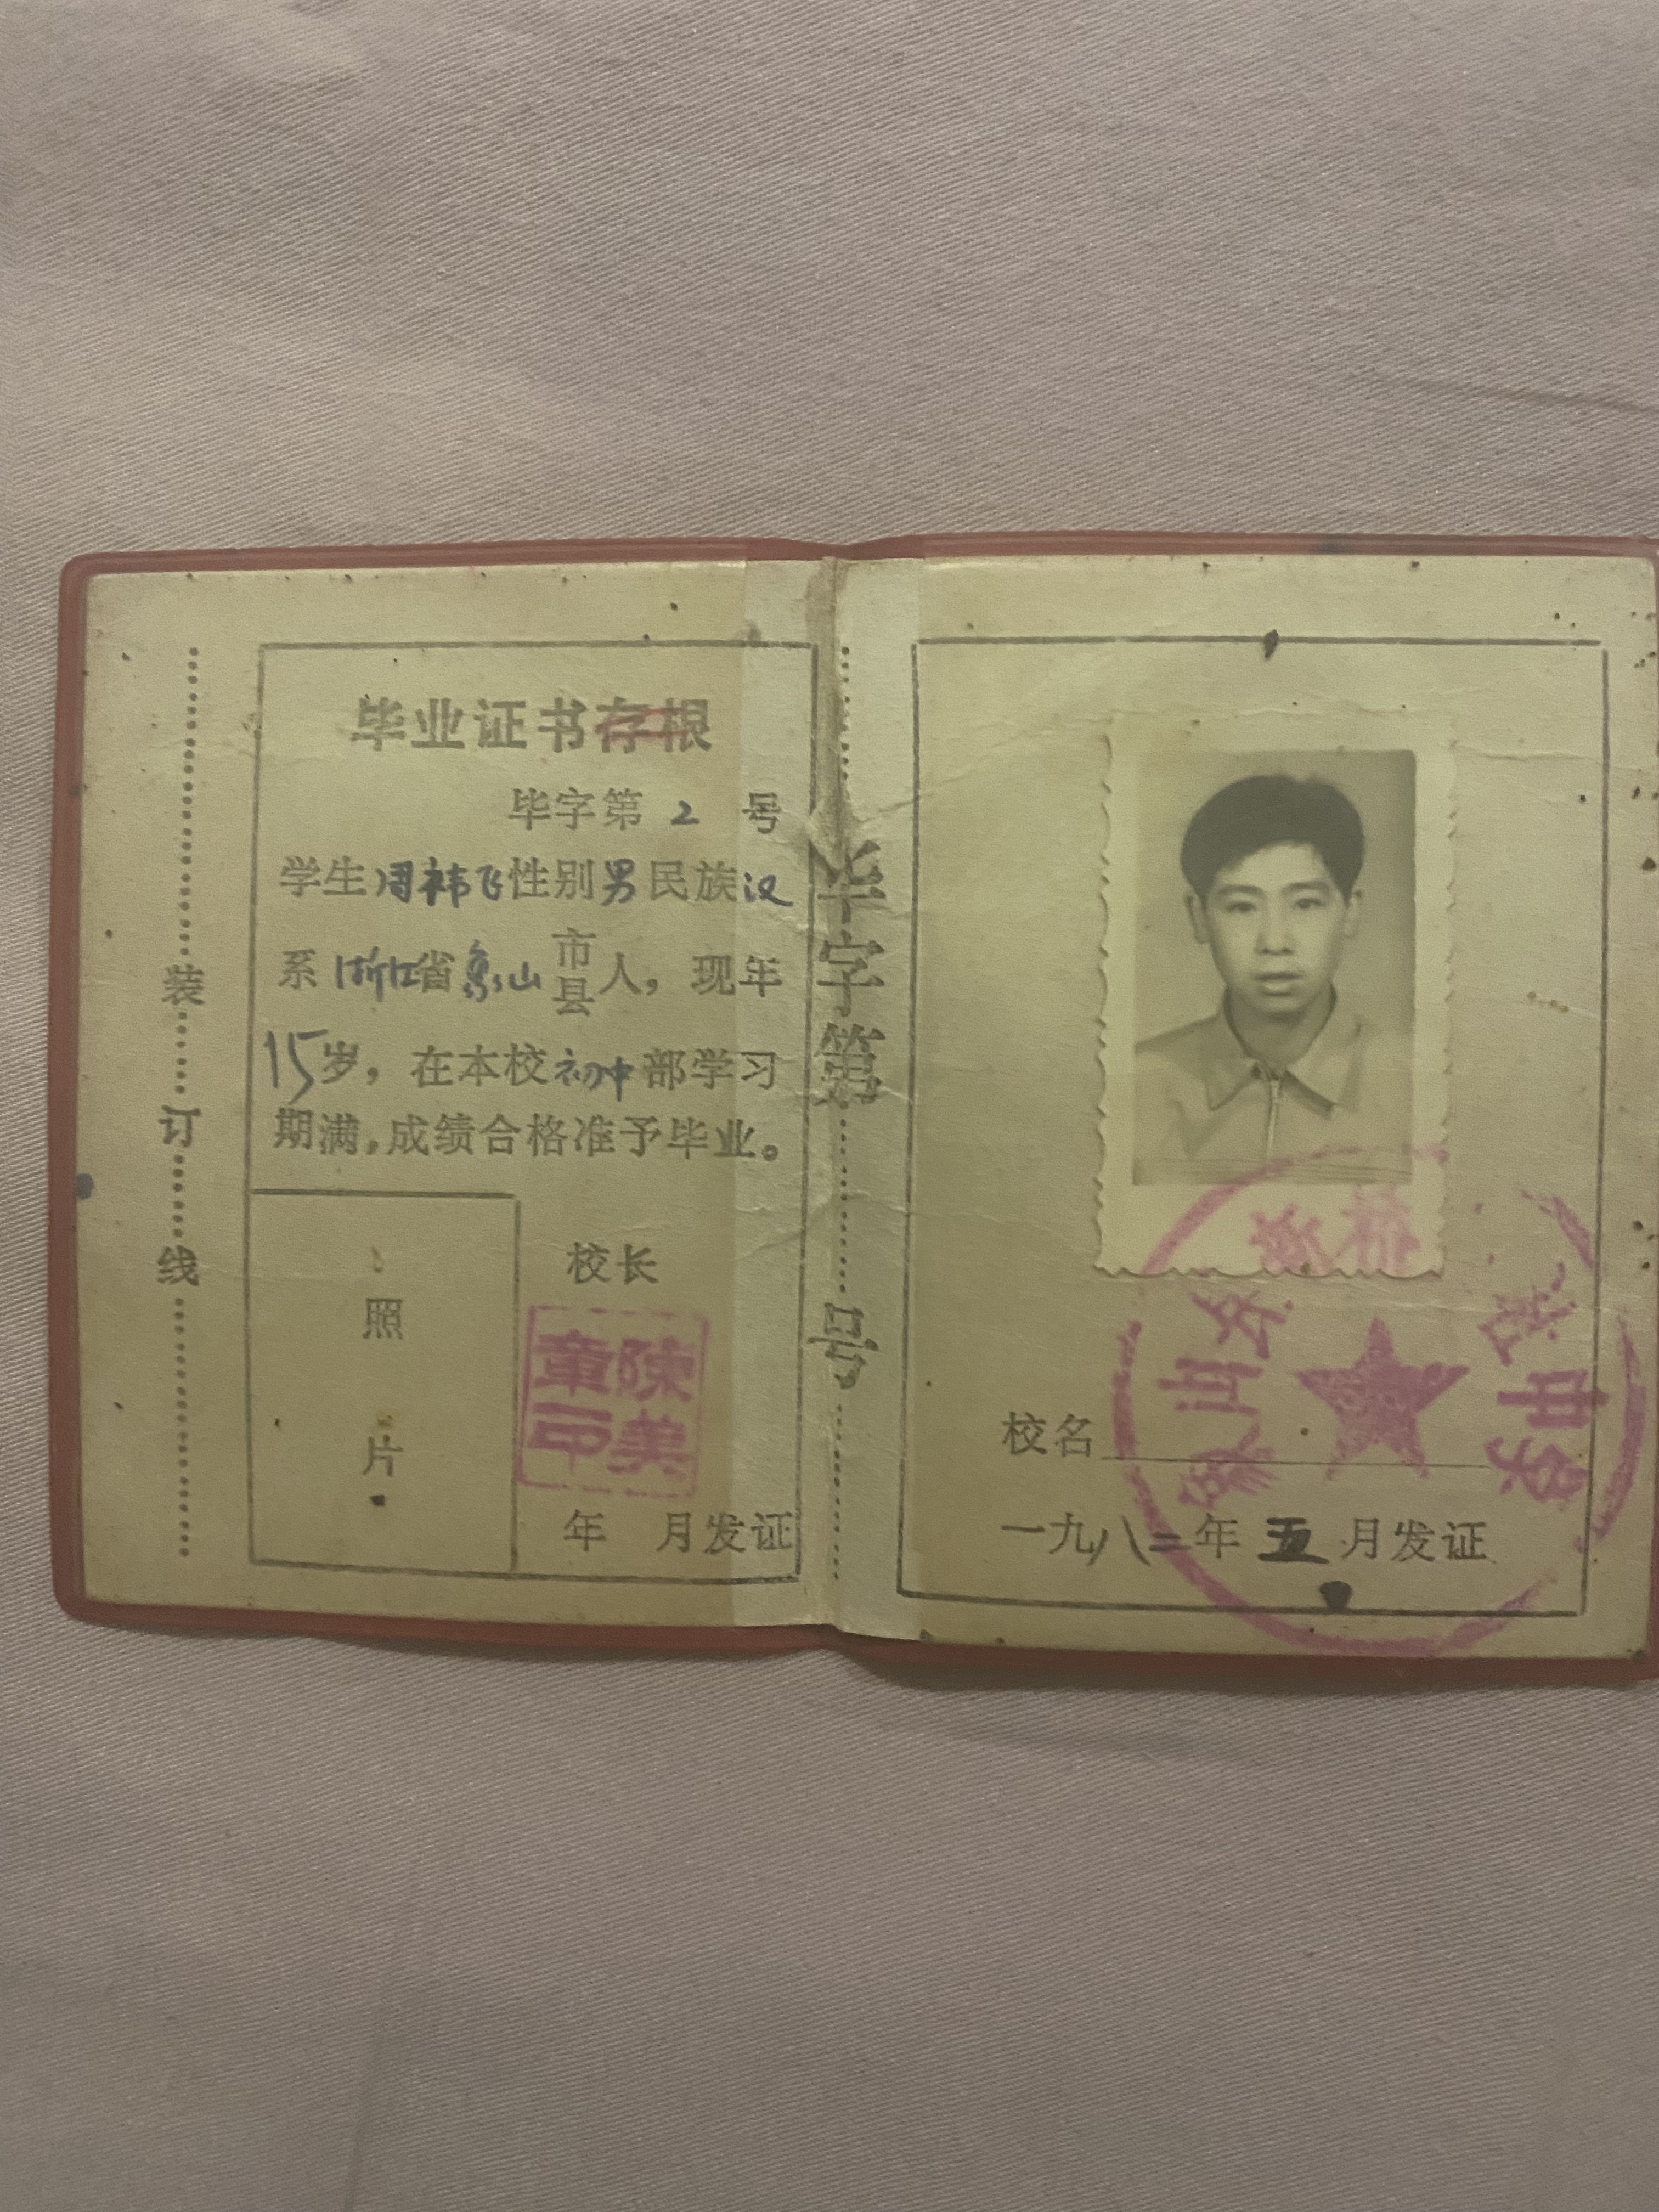 毕业证书存根
毕字第 2 号
学生周祎飞性别男民族汉
系浙江省象山市县人，现年
15岁，在本校初中部学习
期满，成绩合格准予毕业。
校长
陳美章印
年 月发证
照片
装订线
毕字第 号
象山县
中学
校名
一九八二年五月发证